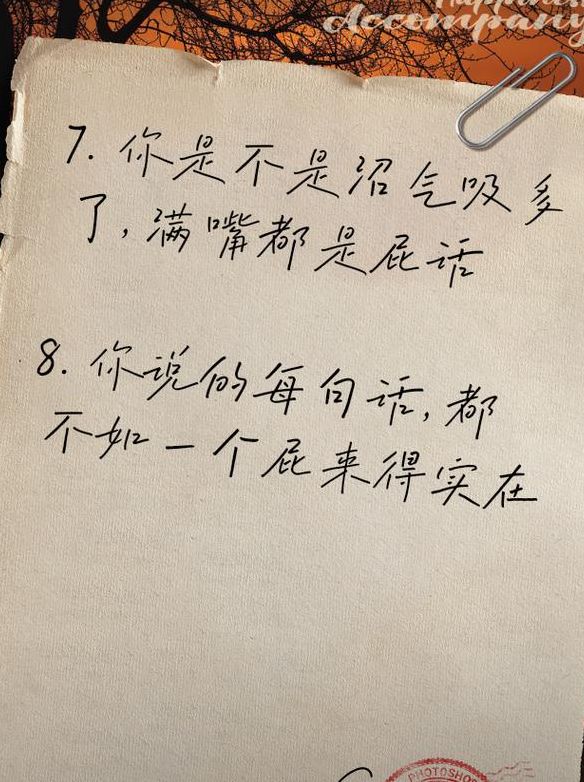 Happiness
Accompany
7. 你是不是沼气吸多
了, 满嘴都是屁话
8. 你说的每句话, 都
不如一个屁来得实在
PHOTOSHOP